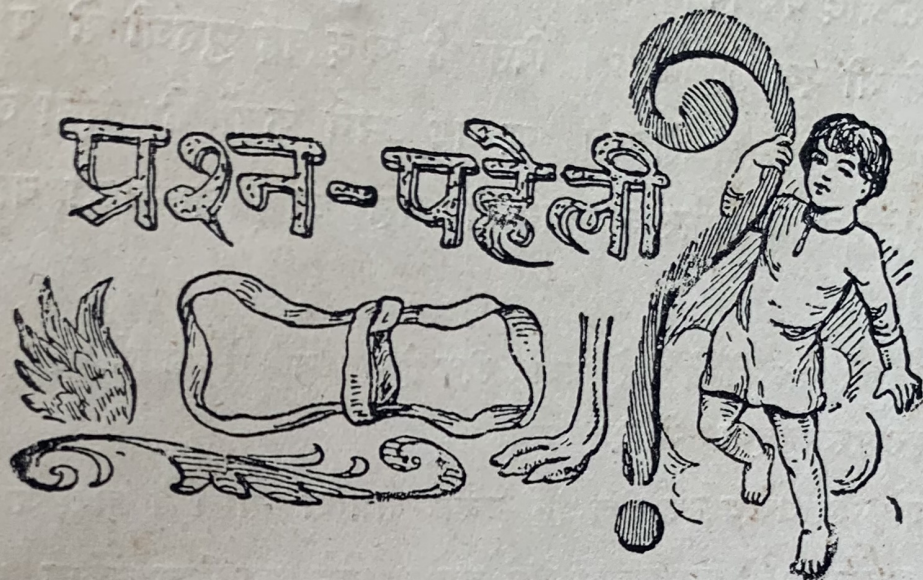 प्रश्न-पहेली